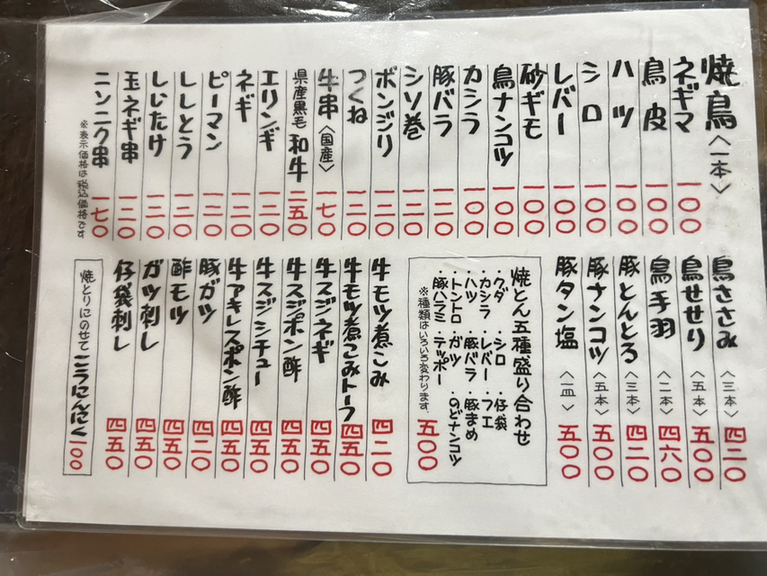 焼鳥〈一本〉
ネギマ 一〇〇
鳥皮 一〇〇
ハツ 一〇〇
シロ 一〇〇
レバー 一〇〇
砂ギモ 一〇〇
鳥ナンコツ 一〇〇
カシラ 一〇〇
豚バラ 一二〇
シソ巻 一二〇
ボンジリ 一二〇
つくね 一二〇
牛串〈国産〉 一七〇
県産黒毛和牛 二五〇
エリンギ 一二〇
ネギ 一二〇
ピーマン 一二〇
ししとう 一二〇
しいたけ 一二〇
玉ネギ串 一二〇
ニンニク串 一七〇
※表示価格は税込価格です
鳥ささみ〈三本〉 四二〇
鳥せせり〈五本〉 五〇〇
鳥手羽〈二本〉 四六〇
豚とんとろ〈三本〉 四二〇
豚ナンコツ〈五本〉 五〇〇
豚タン塩〈一皿〉 五〇〇
焼とん五種盛り合わせ
・クダ ・シロ ・仔袋
・カシラ ・レバー ・フエ
・ハツ ・豚バラ ・豚まめ
・トントロ ・ガツ ・のどナンコツ
・豚ハラミ ・テッポー
※種類はいろいろ変わります。
五〇〇
牛モツ煮こみ 四二〇
牛モツ煮こみトーフ 四五〇
牛スジネギ 四五〇
牛スジポン酢 四五〇
牛スジシチュー 四五〇
牛アキレスポン酢 四五〇
豚ガツ 四二〇
酢モツ 四五〇
ガツ刺し 四五〇
仔袋刺し 四五〇
焼とりにのせて ニラにんにく 一〇〇